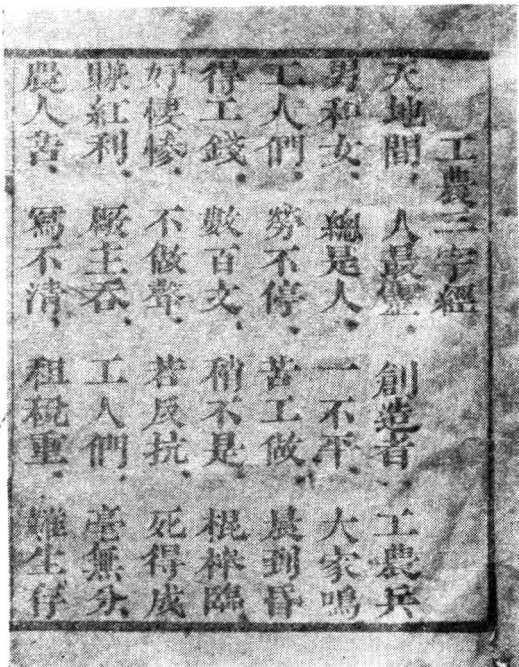 工農三字經
天地間、人最靈、創造者、工農兵
男和女、總是人、一不平、大家鳴
工人們、勞不停、苦工做、晨到昏
得工錢、數百文、稍不是、棍棒臨
好悽慘、不做聲、若反抗、死得成
賺紅利、厰主吞、工人們、毫無分
農人苦、寫不清、租稅重、難生存